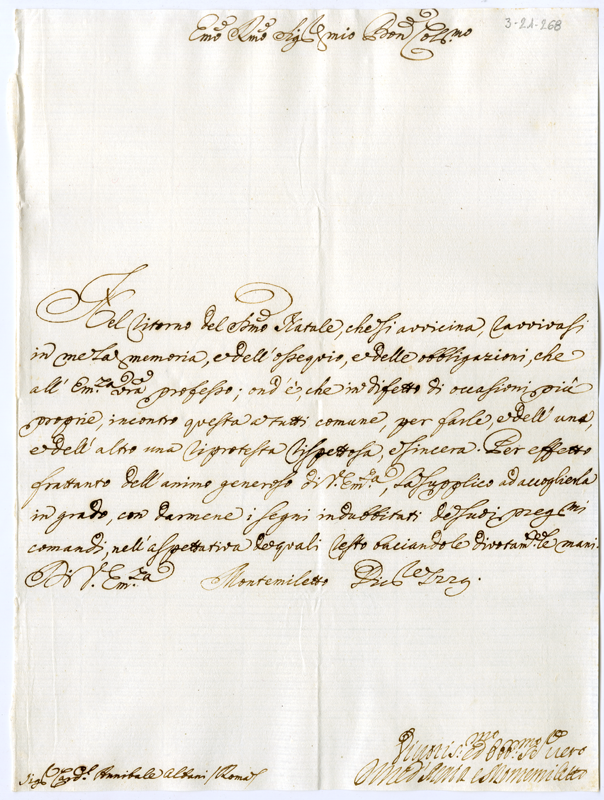 3-21-268
Emo Rmo Sig.re mio Pron Col.mo
Nel ritorno del Smo Natale, che si avvicina, ravvivasi
in me la memoria, e dell'ossequio, e delle obbligazioni, che
all'Em.za Vra professo; ond'è, che in difetto di occasioni più
proprie, incontro questa a tutti comune, per farle, e dell'uno,
e dell'altro una riprotesta rispettosa, e sincera. Per effetto
frattanto dell'animo generoso di V.Em.za, La supplico ad accoglierla
in grado, con darmene i segni indubbitati de suoi preg.mi
comandi, nell'aspettativa de quali resto baciandole divotam.te le mani.
Di V. Em.za Montemiletto
Sig.r Card.l Annibale Albani / Roma